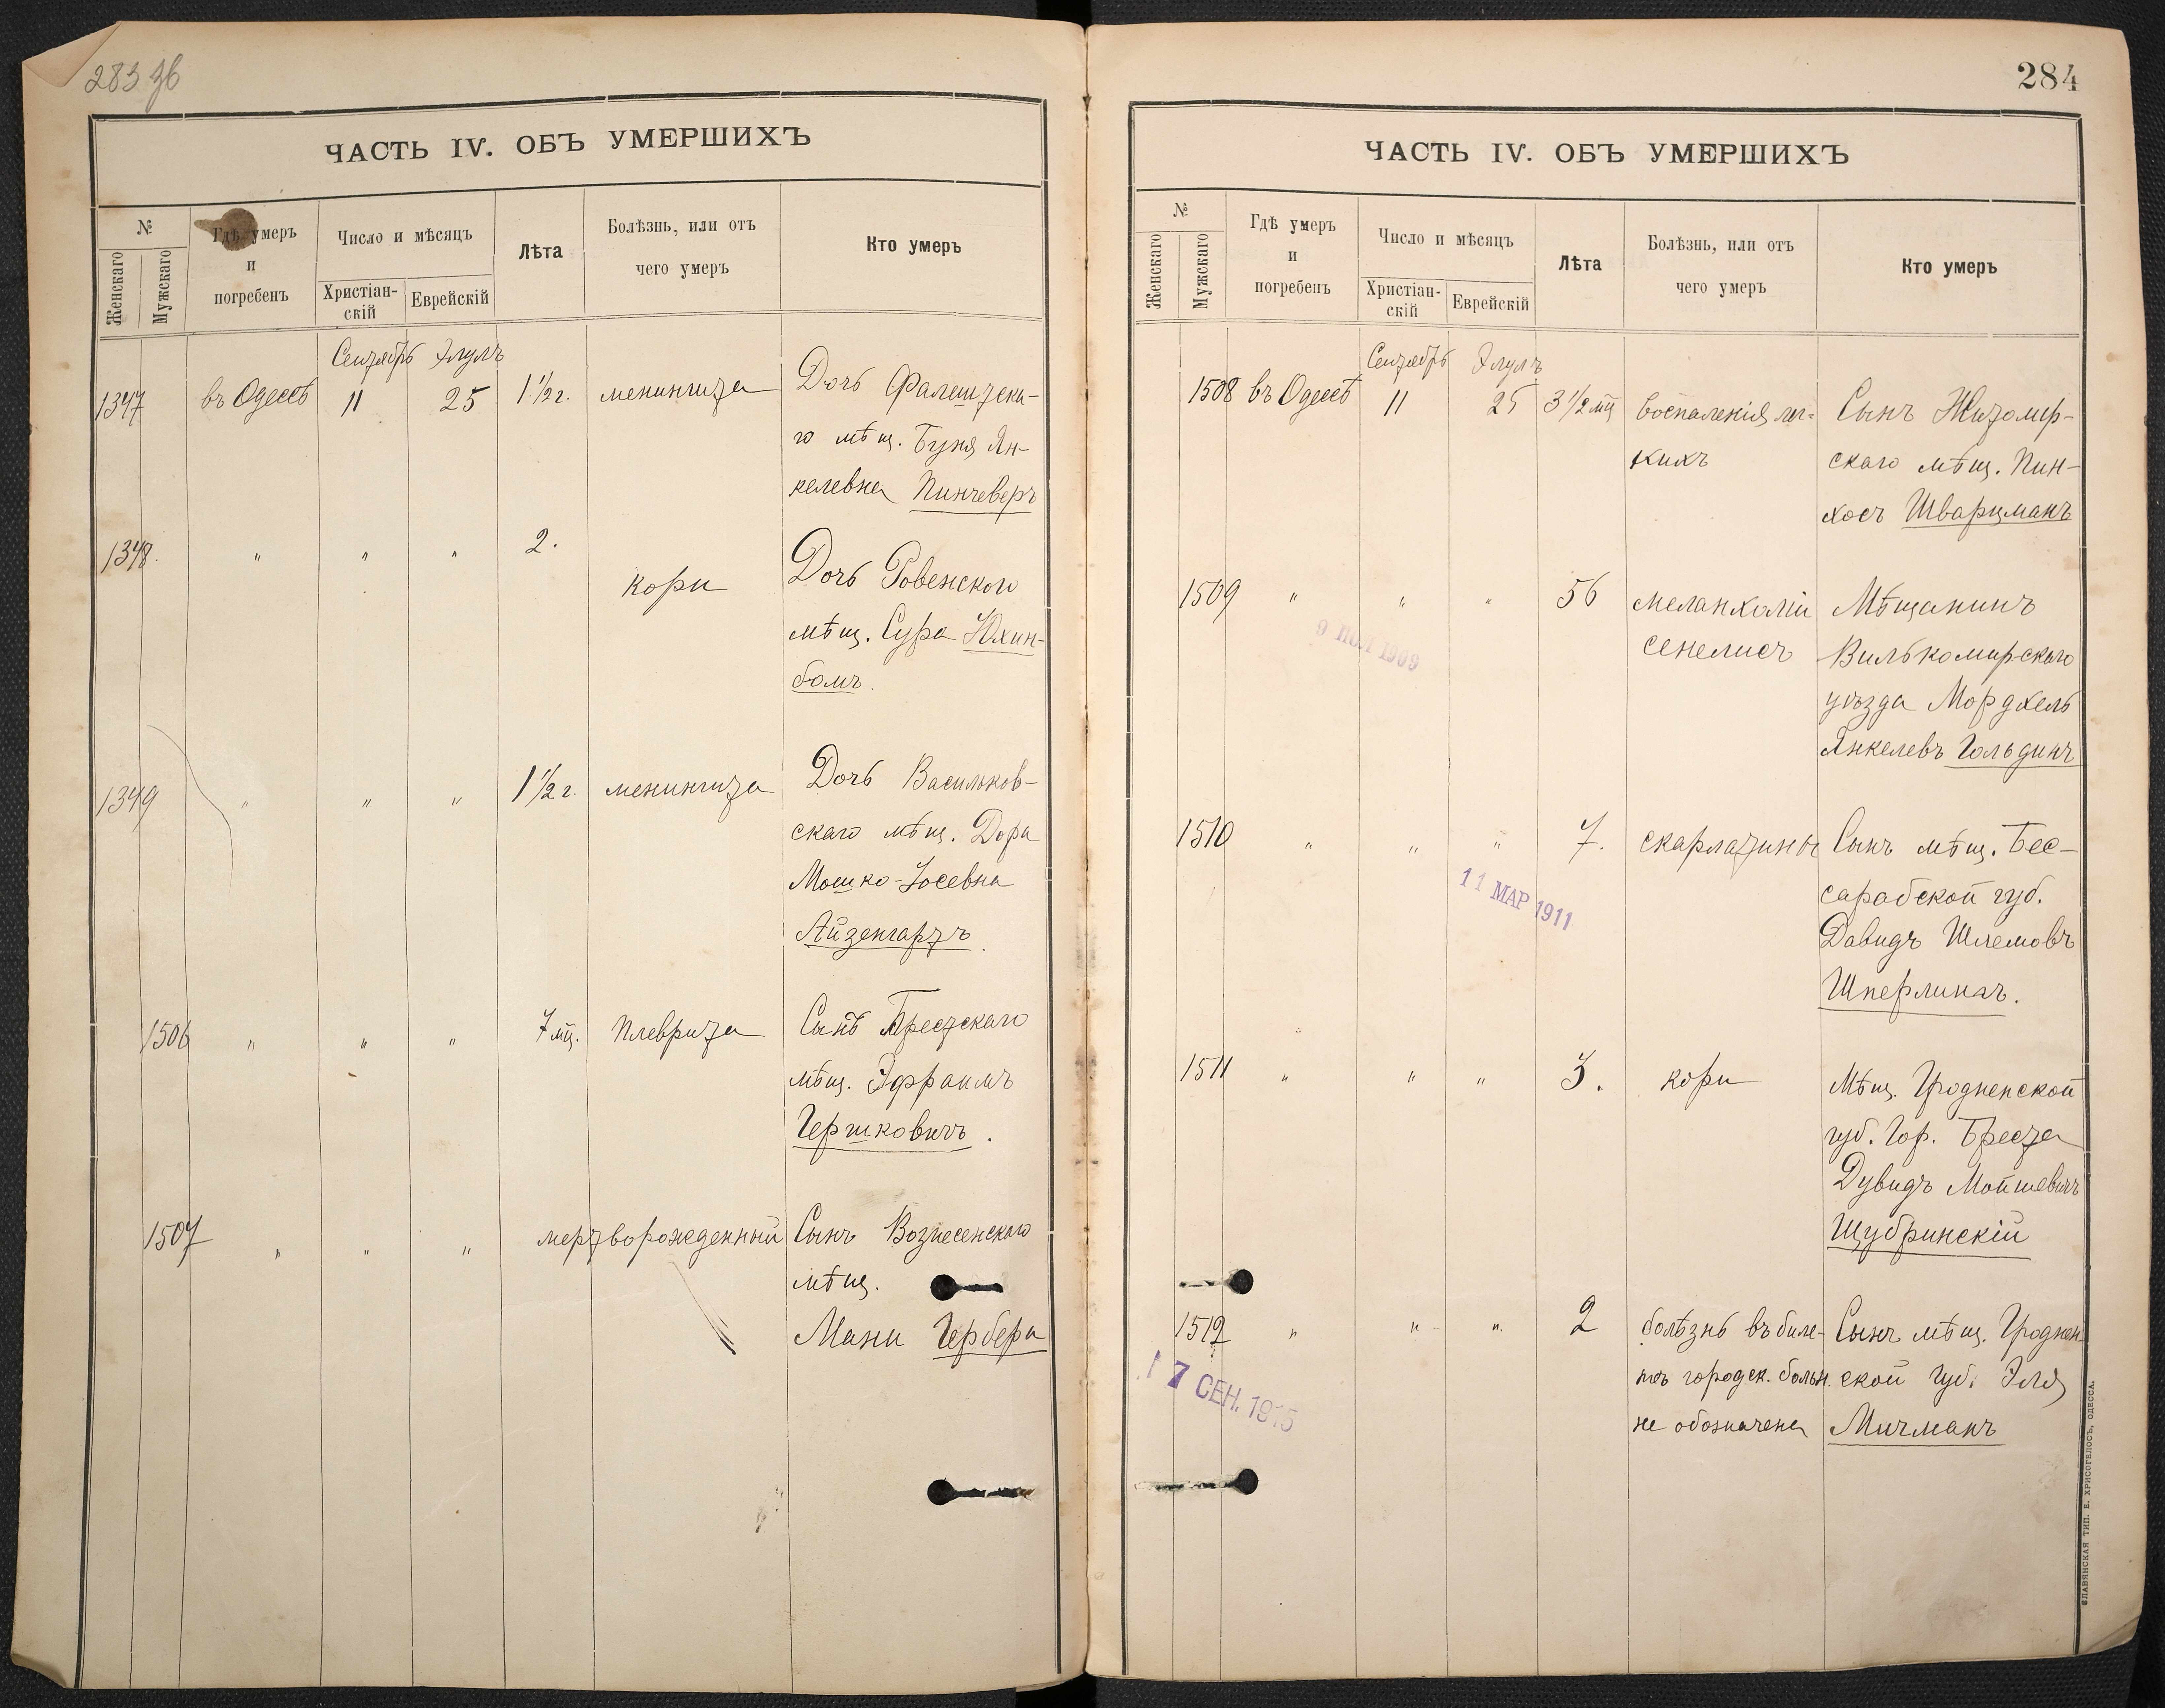 283 зб
ЧАСТЬ IV. ОБЪ УМЕРШИХЪ
№
Женскаго
Мужскаго
Гдѣ умеръ
и
погребенъ
Число и мѣсяцъ
Христіан-
скій
Еврейскій
Лѣта
Болѣзнь, или отъ
чего умеръ
Кто умеръ
Сентябрь Элулъ
1347 въ Одессѣ 11 25 1 1/2 г. менингита Дочь Фалештска-
го мѣщ. Буня Ян-
келевна Пинчеверъ
1348. " " " 2. кори Дочь Ровенскаго
мѣщ. Сура Юхин-
бомъ.
1349 " " " 1 1/2 г. менингита Дочь Васильков-
скаго мѣщ. Дора
Мошко-Іосевна
Айзенгартъ.
1506 " " " 7 мц. Плеврита Сынъ Брестскаго
мѣщ. Эфраимъ
Гершковичъ.
1507 " " " мертворожденный Сынъ Вознесенскаго
мѣщ.
Мани Гербера
284
ЧАСТЬ IV. ОБЪ УМЕРШИХЪ
№
Женскаго
Мужскаго
Гдѣ умеръ
и
погребенъ
Число и мѣсяцъ
Христіан-
скій
Еврейскій
Лѣта
Болѣзнь, или отъ
чего умеръ
Кто умеръ
Сентябрь Элулъ
1508 въ Одессѣ 11 25 3 1/2 мц воспаленія лег= Сынъ Житомір-
кихъ скаго мѣщ. Пин-
хосъ Шварцманъ
1509 " " " 56 меланхоліи Мѣщанинъ
сенелисъ Вилькомирскаго
уѣзда Мордхель
Янкелевъ Гольдинъ
9 1909
1510 " " " 7. скарлатины Сынъ мѣщ. Бес-
сарабской губ.
Давидъ Шлемовъ
Шперлингъ.
11 МАР 1911
1511 " " " 3. кори Мѣщ. Гродненской
губ. Гор. Бреста
Дувидъ Мойшевичъ
Щубринскій
1512 " " " 2 болѣзнь въ биле- Сынъ мѣщ. Гроднен
тѣ городск. больн. ской Губ. Эля
не обозначена Мичманъ
17 СЕН. 1915
СЛАВЯНСКАЯ ТИП. Е. ХРИСОГЕЛОСЪ, ОДЕССА.